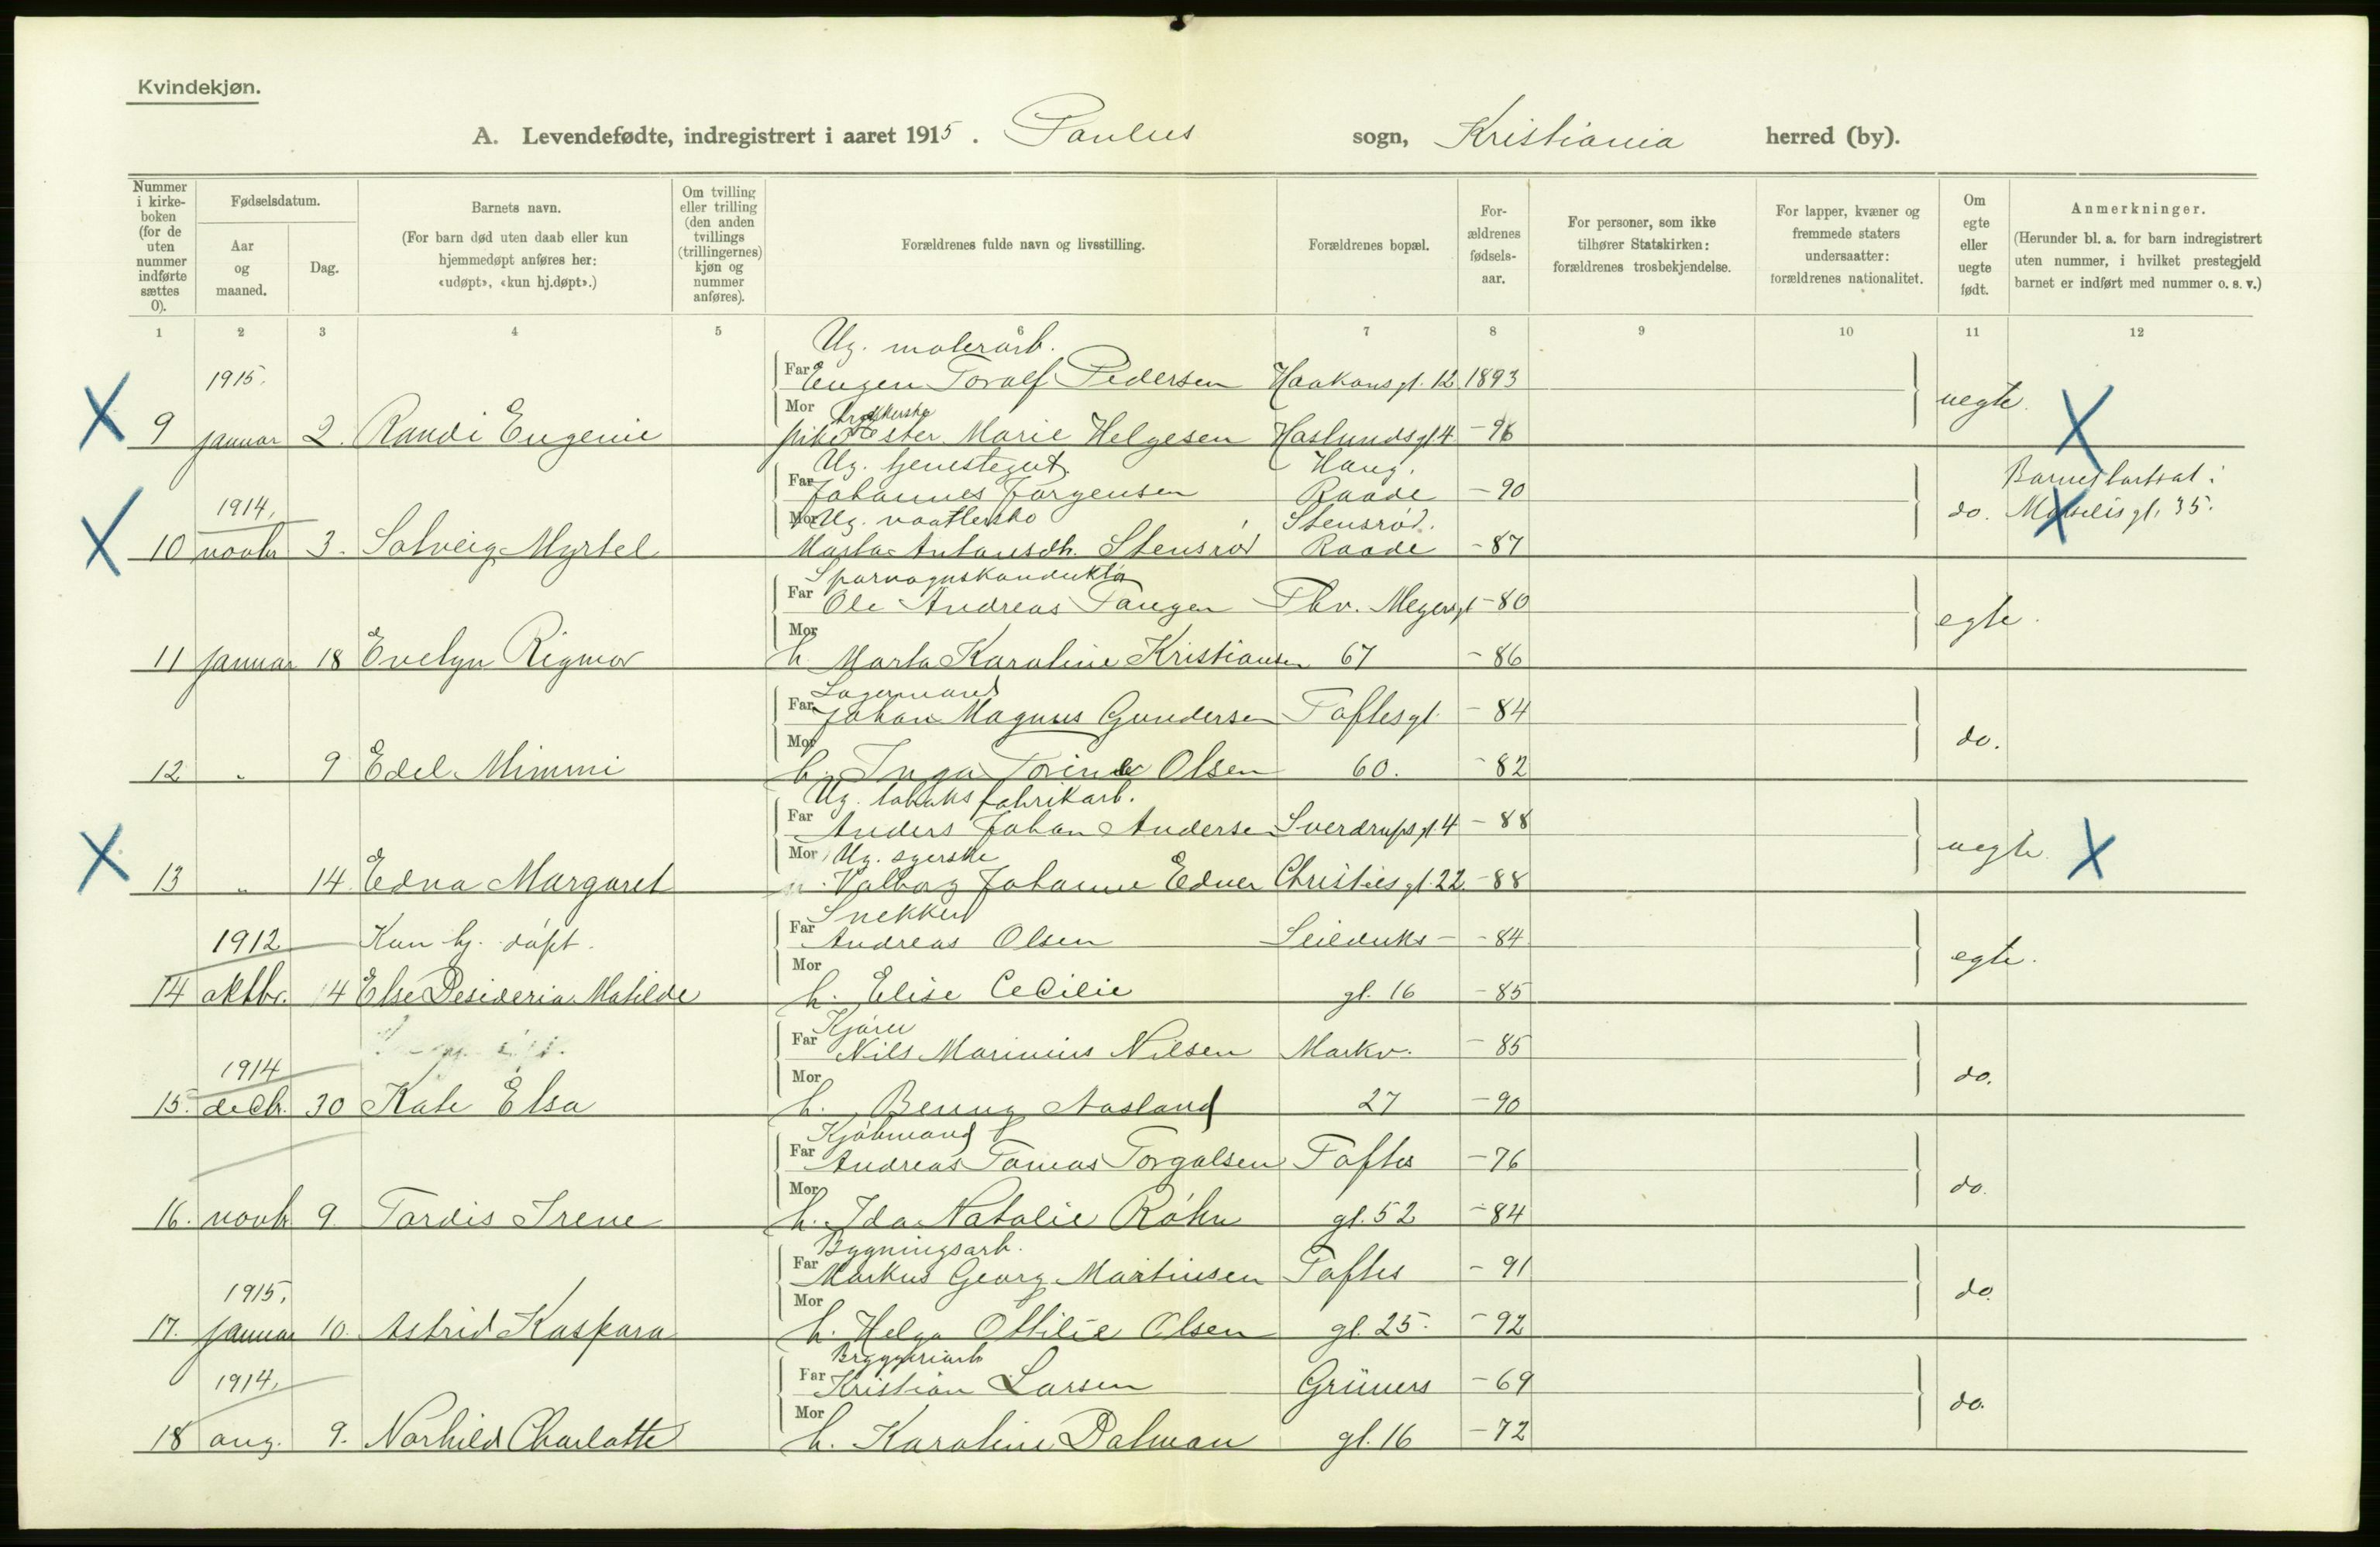 Kvindekjøn.
A. Levendefødte, indregistrert i aaret 1915. Paulus sogn, Kristiania herred (by).
Nummer i kirkeboken (for de uten nummer indførte sættes 0).
Fødselsdatum.
Aar og maaned.
Dag.
Barnets navn.
(For barn død uten daab eller kun hjemmedøpt anføres her: «udøpt», «kun hj.døpt».)
Om tvilling eller trilling (den anden tvillings (trillingernes) kjøn og nummer anføres).
Forældrenes fulde navn og livsstilling.
Forældrenes bopæl.
Forældrenes fødselsaar.
For personer, som ikke tilhører Statskirken: forældrenes trosbekjendelse.
For lapper, kvæner og fremmede staters undersaatter: forældrenes nationalitet.
Om egte eller uegte født.
Anmerkninger.
(Herunder bl. a. for barn indregistrert uten nummer, i hvilket prestegjeld barnet er indført med nummer o. s. v.)
1 2 3 4 5 6 7 8 9 10 11 12
Ug. malerarb.
1915. Far Eugen Toralf Pedersen Haakonsgt. 12 1893
uegte.
Mor
9 januar 2. Randi Eugenie pike Ester Marie Helgesen Haslundsgt. 4 -96
Ug. tjenestegut. Haug.
Far Johannes Jørgensen Raade -90
1914. do.
Mor Ug. Stensrød. gt. 35.
10 novbr 3. Solveig Myrtel Marta Antonsdtr. Stensrød Raade -87
Sporvognskonduktør
Far Ole Andreas Tangen Thv. Meyersgt -80
egte.
Mor
11 januar 18 Evelyn Rigmor h. Marta Karoline Kristiansen 67 -86
Lagermand
Far Johan Magnus Gundersen Toftesgt. -84
do.
Mor
12 " 9 Edel Mimmi h. Inga Torinde Olsen 60. -82
Ug. tobaksfabrikarb.
Far Anders Johan Andersen Sverdrupsgt. 4 -88
uegte.
Mor Ug. syerske
13 " 14 Edna Margaret Valborg Johanne Edner Christiesgt. 22. -88
Snekker
1912 Kun hj. døpt. Far Andreas Olsen Seilduks- -84
egte.
Mor
14 oktbr. 14 Else Desideria Matilde h. Elise Cecilie gt. 16 -85
Kjører
Far Nils Marinius Nilsen Markv. -85
1914 do.
Mor
15. decbr. 30 Kate Elsa h. Benny Aasland 27 -90
Kjøbmand
Far Andreas Tomas Torgalsen Toftes -76
do.
Mor
16. novbr 9. Tordis Irene h. Ida Natalie Røhn gt. 52 -84
Bygningsarb.
Far Markus Georg Martinsen Toftes -91
1915. do.
Mor
17. januar 10. Astrid Kaspara h. Helga Ottilie Olsen gt. 25. -92
Bryggeriarb
1914. Far Kristian Larsen Grüners -69
do.
Mor
18 aug. 9. Norhild Charlotte h. Karoline Dalman gt. 16 -72